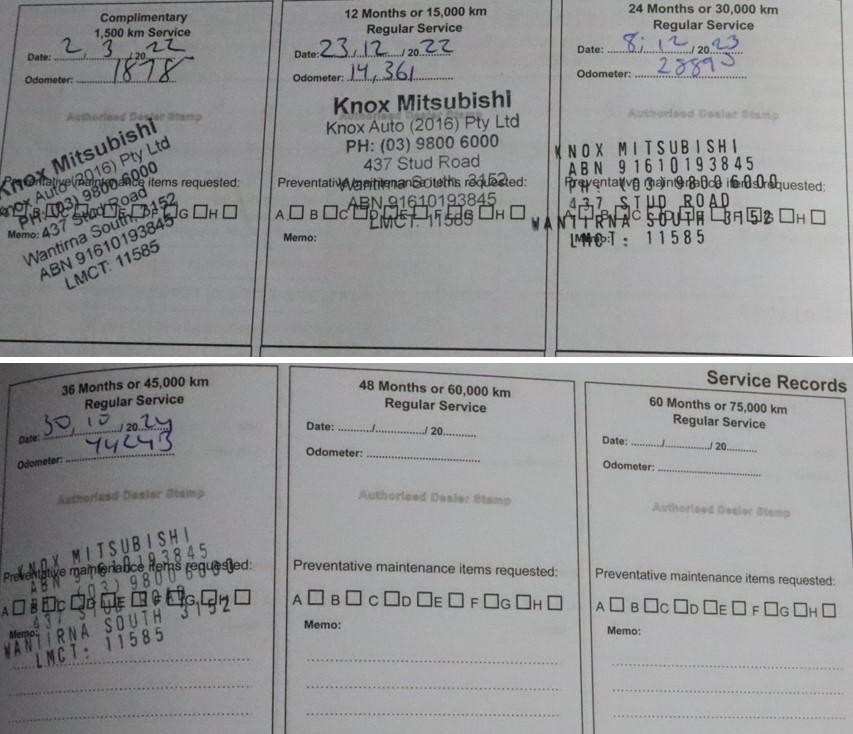 Complimentary
1,500 km Service
Date: 2, 3 / 20 22
Odometer: 1878
Authorised Dealer Stamp
Knox Mitsubishi
Knox Auto (2016) Pty Ltd
PH: (03) 9800 6000
Preventative maintenance items requested:
437 Stud Road
A B C D E F G H
Memo:
Wantirna South, 3152
ABN 91610193845
LMCT: 11585
12 Months or 15,000 km
Regular Service
Date: 23 / 12 / 20 22
Odometer: 14,361
Authorised Dealer Stamp
Knox Mitsubishi
Knox Auto (2016) Pty Ltd
PH: (03) 9800 6000
437 Stud Road
Preventative maintenance items requested:
Wantirna South, 3152
ABN 91610193845
A B C D E F G H
LMCT: 11585
Memo:
24 Months or 30,000 km
Regular Service
Date: 8, 12 / 20 23
Odometer: 28895
Authorised Dealer Stamp
KNOX MITSUBISHI
ABN 91610193845
PH (03) 9800 6000
Preventative maintenance items requested:
437 STUD ROAD
A B C D E F G H
WANTIRNA SOUTH 3152
LMCT: 11585
Memo:
36 Months or 45,000 km
Regular Service
Date: 30, 10 / 20 24
Odometer: 44243
Authorised Dealer Stamp
KNOX MITSUBISHI
ABN 91610193845
Preventative maintenance items requested:
PH (03) 9800 6000
A B C D E F G H
437 STUD ROAD
Memo:
WANTIRNA SOUTH 3152
LMCT: 11585
48 Months or 60,000 km
Regular Service
Date: ......../......../ 20...........
Odometer: ........................................
Authorised Dealer Stamp
Preventative maintenance items requested:
A B C D E F G H
Memo:
Service Records
60 Months or 75,000 km
Regular Service
Date: ......../......../ 20...........
Odometer: ........................................
Authorised Dealer Stamp
Preventative maintenance items requested:
A B C D E F G H
Memo: